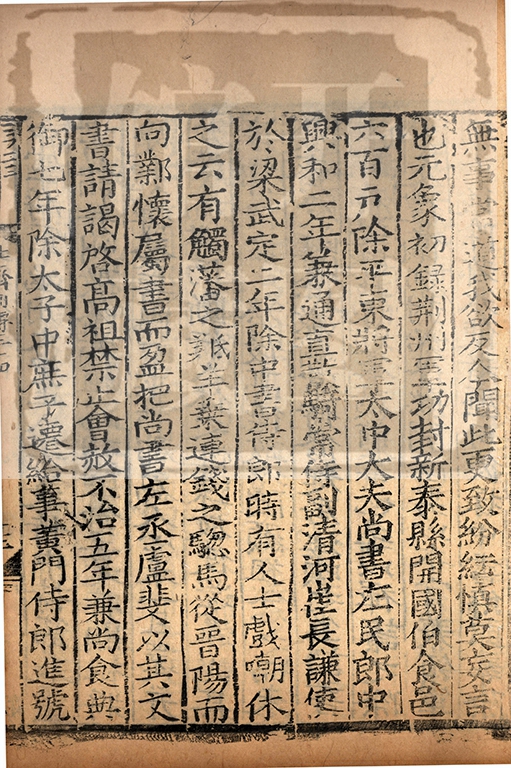 無事常道我欲反今聞此更致紛紜慎莫妄言
也元象初録荆州軍功封新泰縣開國伯食邑
六百戸除平東將軍太中大夫尚書左民郎中
興和二年兼通直散騎常侍副清河崔長謙使
於梁武定二年除中書侍郎時有人士戲嘲休
之云有觸藩之羝羊乗連錢之驄馬從晉陽而
向鄴懷屬書而盈把尚書左丞盧斐以其文
書請謁啓高祖禁止會赦不治五年兼尚食典
御七年除太子中庶子遷給事黄門侍郎進號